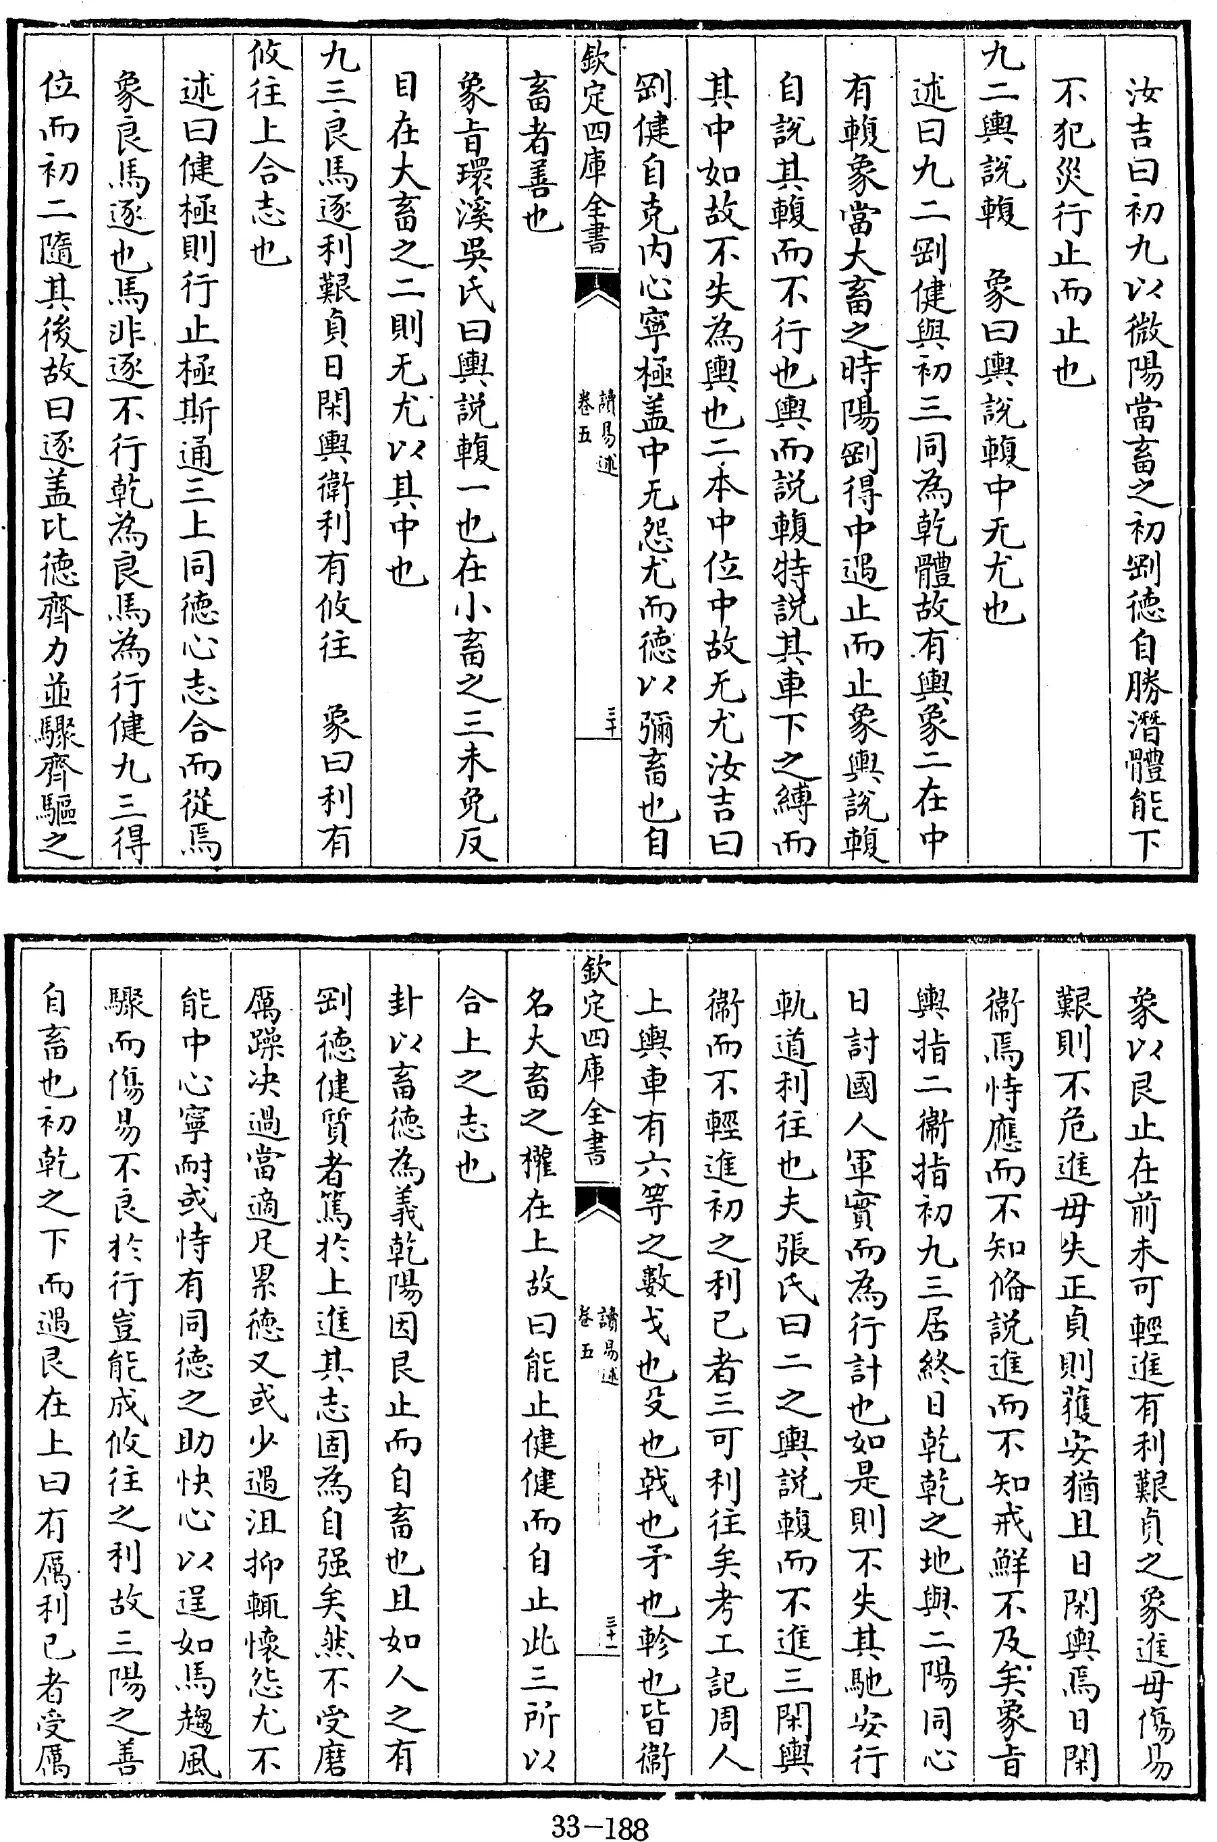 汝吉曰初九以微陽當畜之初剛德自勝潛體能下
不犯災行止而止也
九二輿說輹　象曰輿說輹中无尤也
述曰九二剛健與初三同為乾體故有輿象二在中
有輹象當大畜之時陽剛得中遇止而止象輿說輹
自說其輹而不行也輿而說輹特說其車下之縛而
其中如故不失為輿也二本中位中故无尤汝吉曰
剛健自克内心寧極盖中无怨尤而德以彌畜也自
欽定四庫全書
讀易述
卷五
三十
畜者善也
象旨環溪吳氏曰輿說輹一也在小畜之三未免反
目在大畜之二則无尤以其中也
九三良馬逐利艱貞日閑輿衛利有攸往　象曰利有
攸往上合志也
述曰健極則行止極斯通三上同德心志合而從焉
象良馬逐也馬非逐不行乾為良馬為行健九三得
位而初二隨其後故曰逐盖比德齊力並驟齊驅之
象以艮止在前未可輕進有利艱貞之象進毋傷易
艱則不危進毋失正貞則獲安猶且日閑輿焉日閑
衛焉恃應而不知偹說進而不知戒鮮不及矣象旨
輿指二衛指初九三居終日乾乾之地與二陽同心
日討國人軍實而為行計也如是則不失其馳安行
軌道利往也夫張氏曰二之輿說輹而不進三閑輿
衛而不輕進初之利已者三可利往矣考工記周人
上輿車有六等之數戈也殳也戟也矛也軫也皆衛
欽定四庫全書
讀易述
卷五
三十一
名大畜之權在上故曰能止健健而自止此三所以
合上之志也
卦以畜德為義乾陽因艮止而自畜也且如人之有
剛德健質者篤於上進其志固為自强矣然不受磨
厲躁决過當適足累德又或少遇沮抑輒懷怨尤不
能中心寧耐或恃有同德之助快心以逞如馬趨風
驟而傷易不良於行豈能成攸往之利故三陽之善
自畜也初乾之下而遇艮在上曰有厲利已者受厲
33-188